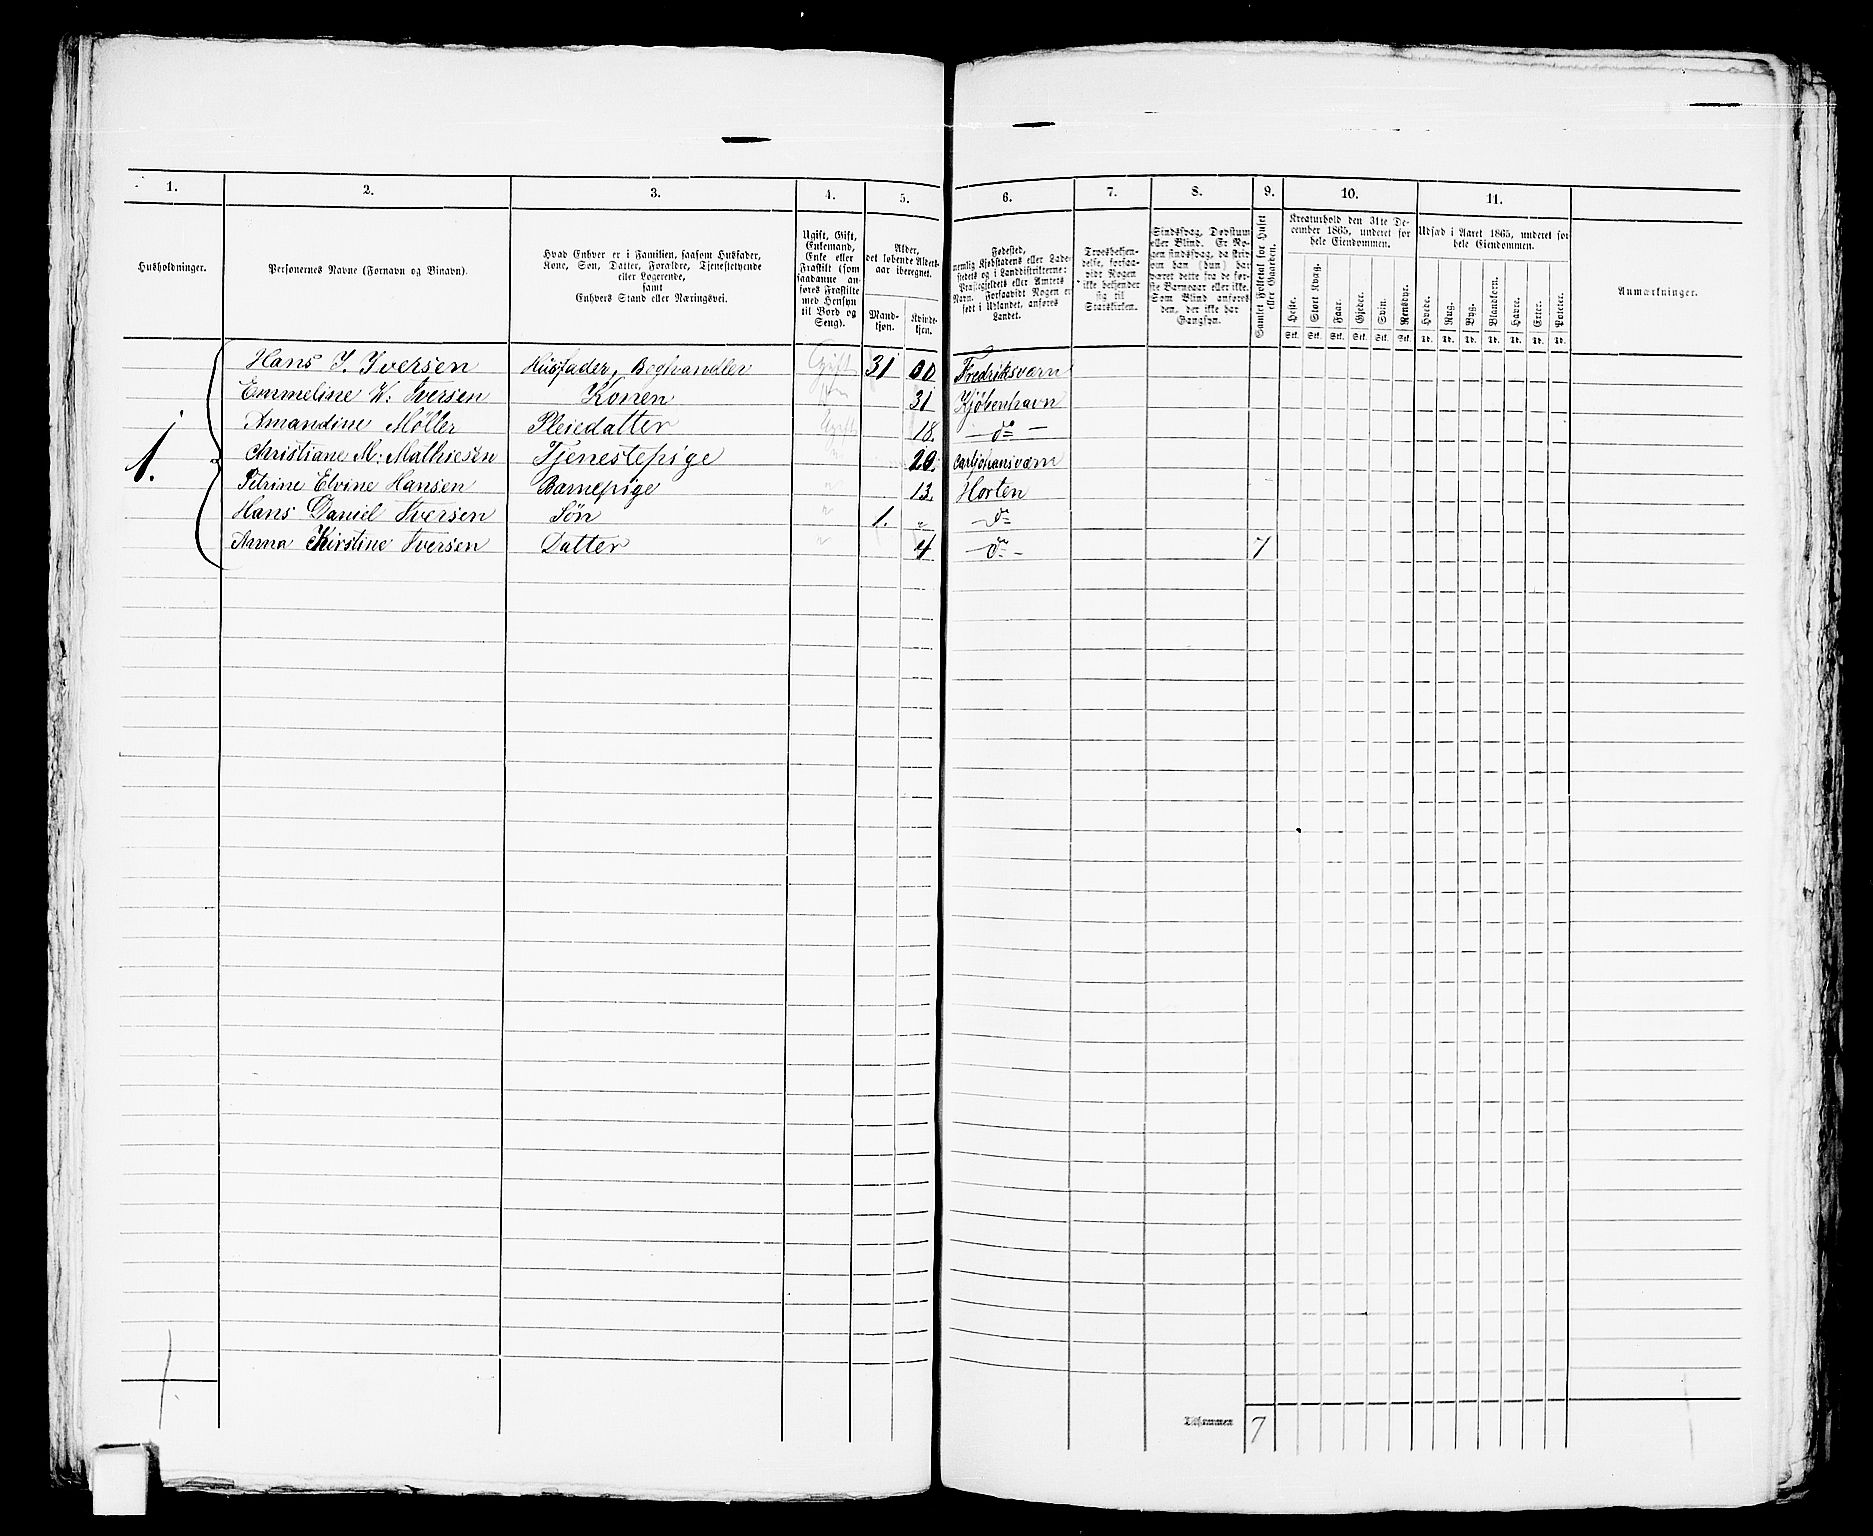 1. 2. 3. 4. 5. 6. 7. 8. 9. 10. 11.
Husholdninger.
Personernes Navne (Fornavn og Binavn).
Hvad Enhver er i Familien, saasom Husfader,
Kone, Søn, Datter, Forældre, Tjenestetyende
eller Logerende,
samt
Enhvers Stand eller Næringsvei.
Ugift, Gift,
Enkemand,
Enke eller
Fraskilt (som
saadanne an-
føres Fraskilte
med Hensyn
til Bord og
Seng).
Alder,
det løbende Alders-
aar iberegnet.
Mand-
kjøn.
Kvinde-
kjøn.
Fødested,
nemlig Kjøbstadens eller Lade-
stedets og i Landdistrikterne:
Præstegjeldets eller Amtets
Navn. Forsaavidt Nogen er
født i Udlandet, anføres
Landet.
Troesbekjen-
delse, forsaa-
vidt Nogen
ikke bekjender
sig til
Statskirken.
Sindssvag, Døvstum
eller Blind. Er No-
gen sindssvag, da skriv
om han (hun) har
været dette fra de før-
ste Barneaar eller ikke.
Som Blind anføres
den, der ikke har
Gangsyn.
Samlet Folketal for Huset
eller Gaarden.
Kreaturhold den 31te De-
cember 1865, underet for
hele Eiendommen.
Heste. Stort Kvæg. Faar. Gjeder. Svin. Rensdyr.
Stk. Stk. Stk. Stk. Stk. Stk.
Udsæd i Aaret 1865, underet for
hele Eiendommen.
Hvede. Rug. Byg. Blandkorn. Havre. Erter. Poteter.
Td. Td. Td. Td. Td. Td. Td.
Anmærkninger.
1.
Hans J. Iversen Husfader, Boghandler Gift 31 Fredriksværn
Emmeline K: Iversen Konen 31 Kjøbenhavn
Amandine Møller Pleiedatter Ugift 18. — do —
Christiane M: Mathiesen Tjenestepige 20. Carljohansværn
Petrine Elvine Hansen Barnepige 13. Horten
Hans Daniel Iversen Søn 1. " — do
Anna Kirstine Iversen Datter 4 — do — 7
1.
Tilsammen 7